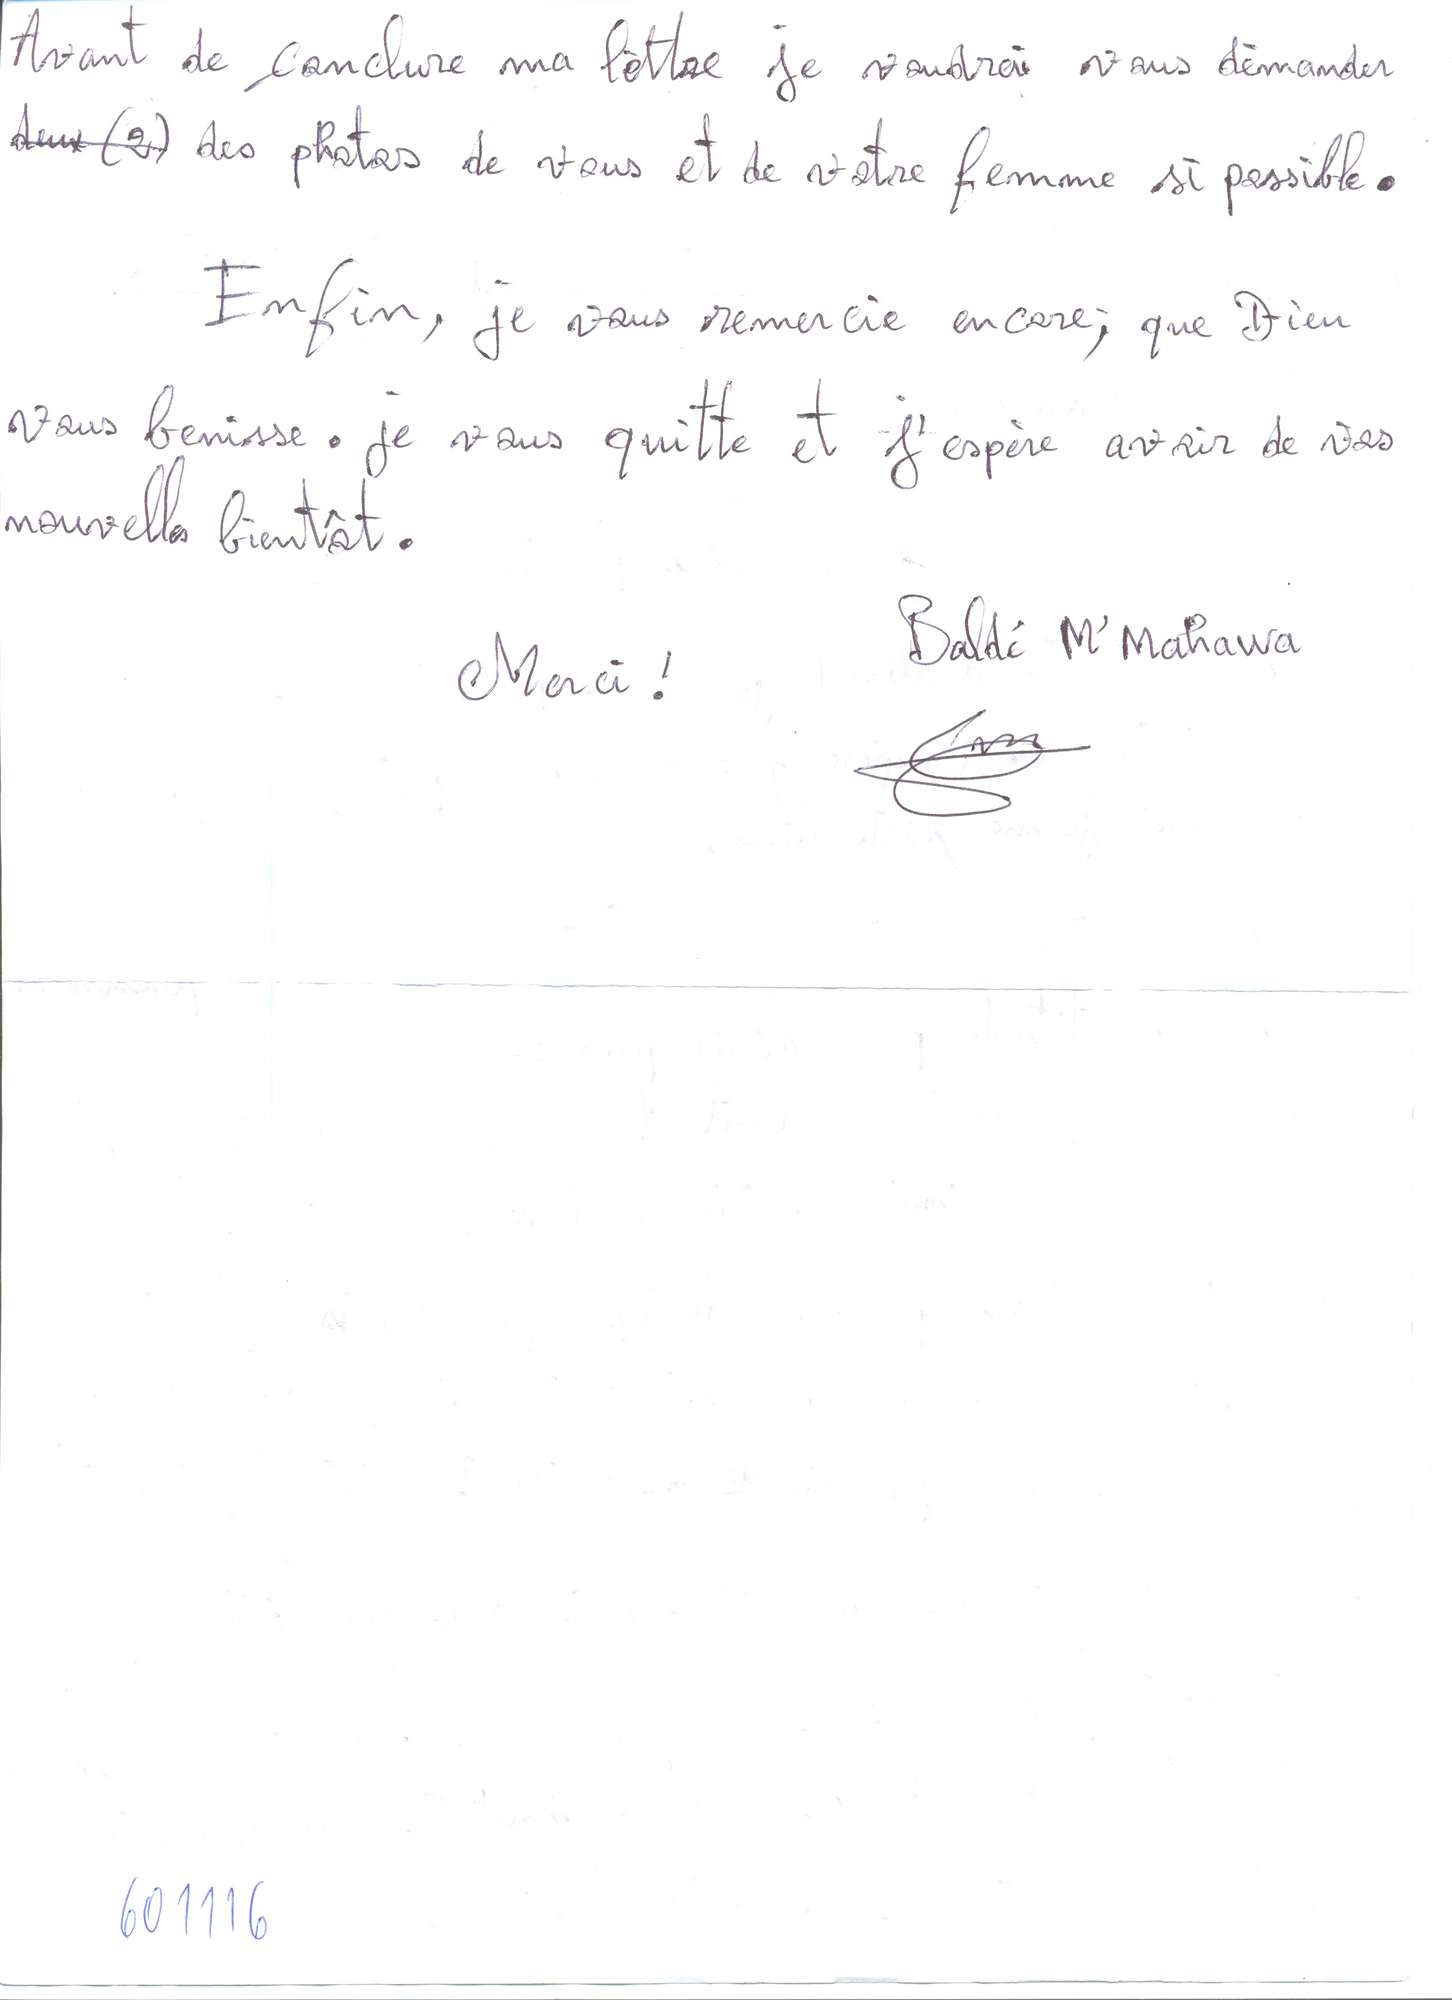 Avant de conclure ma lèttre je voudrai vous démander
deux (2) des photos de vous et de votre femme si possible.
Enfin, je vous remercie encore; que Dieu
vous benisse. je vous quitte et j'espère avoir de vos
nouvells bientôt.
Baldé M'Mahawa
Merci !
601116